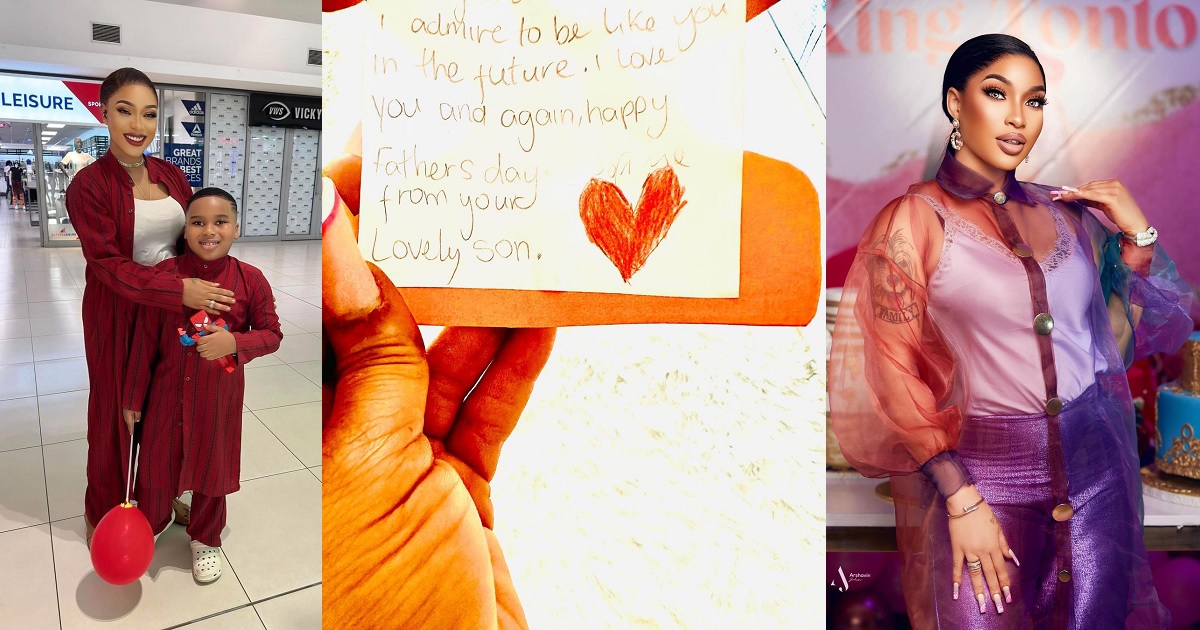 LEISURE
SPO
GREAT
BRANDS
BEST
VWS
VICKY
I admire to be like you
in the future. I love
you and again, happy
Fathers day
from your
Lovely son.
King Tonto
FAMILY
Arshavin